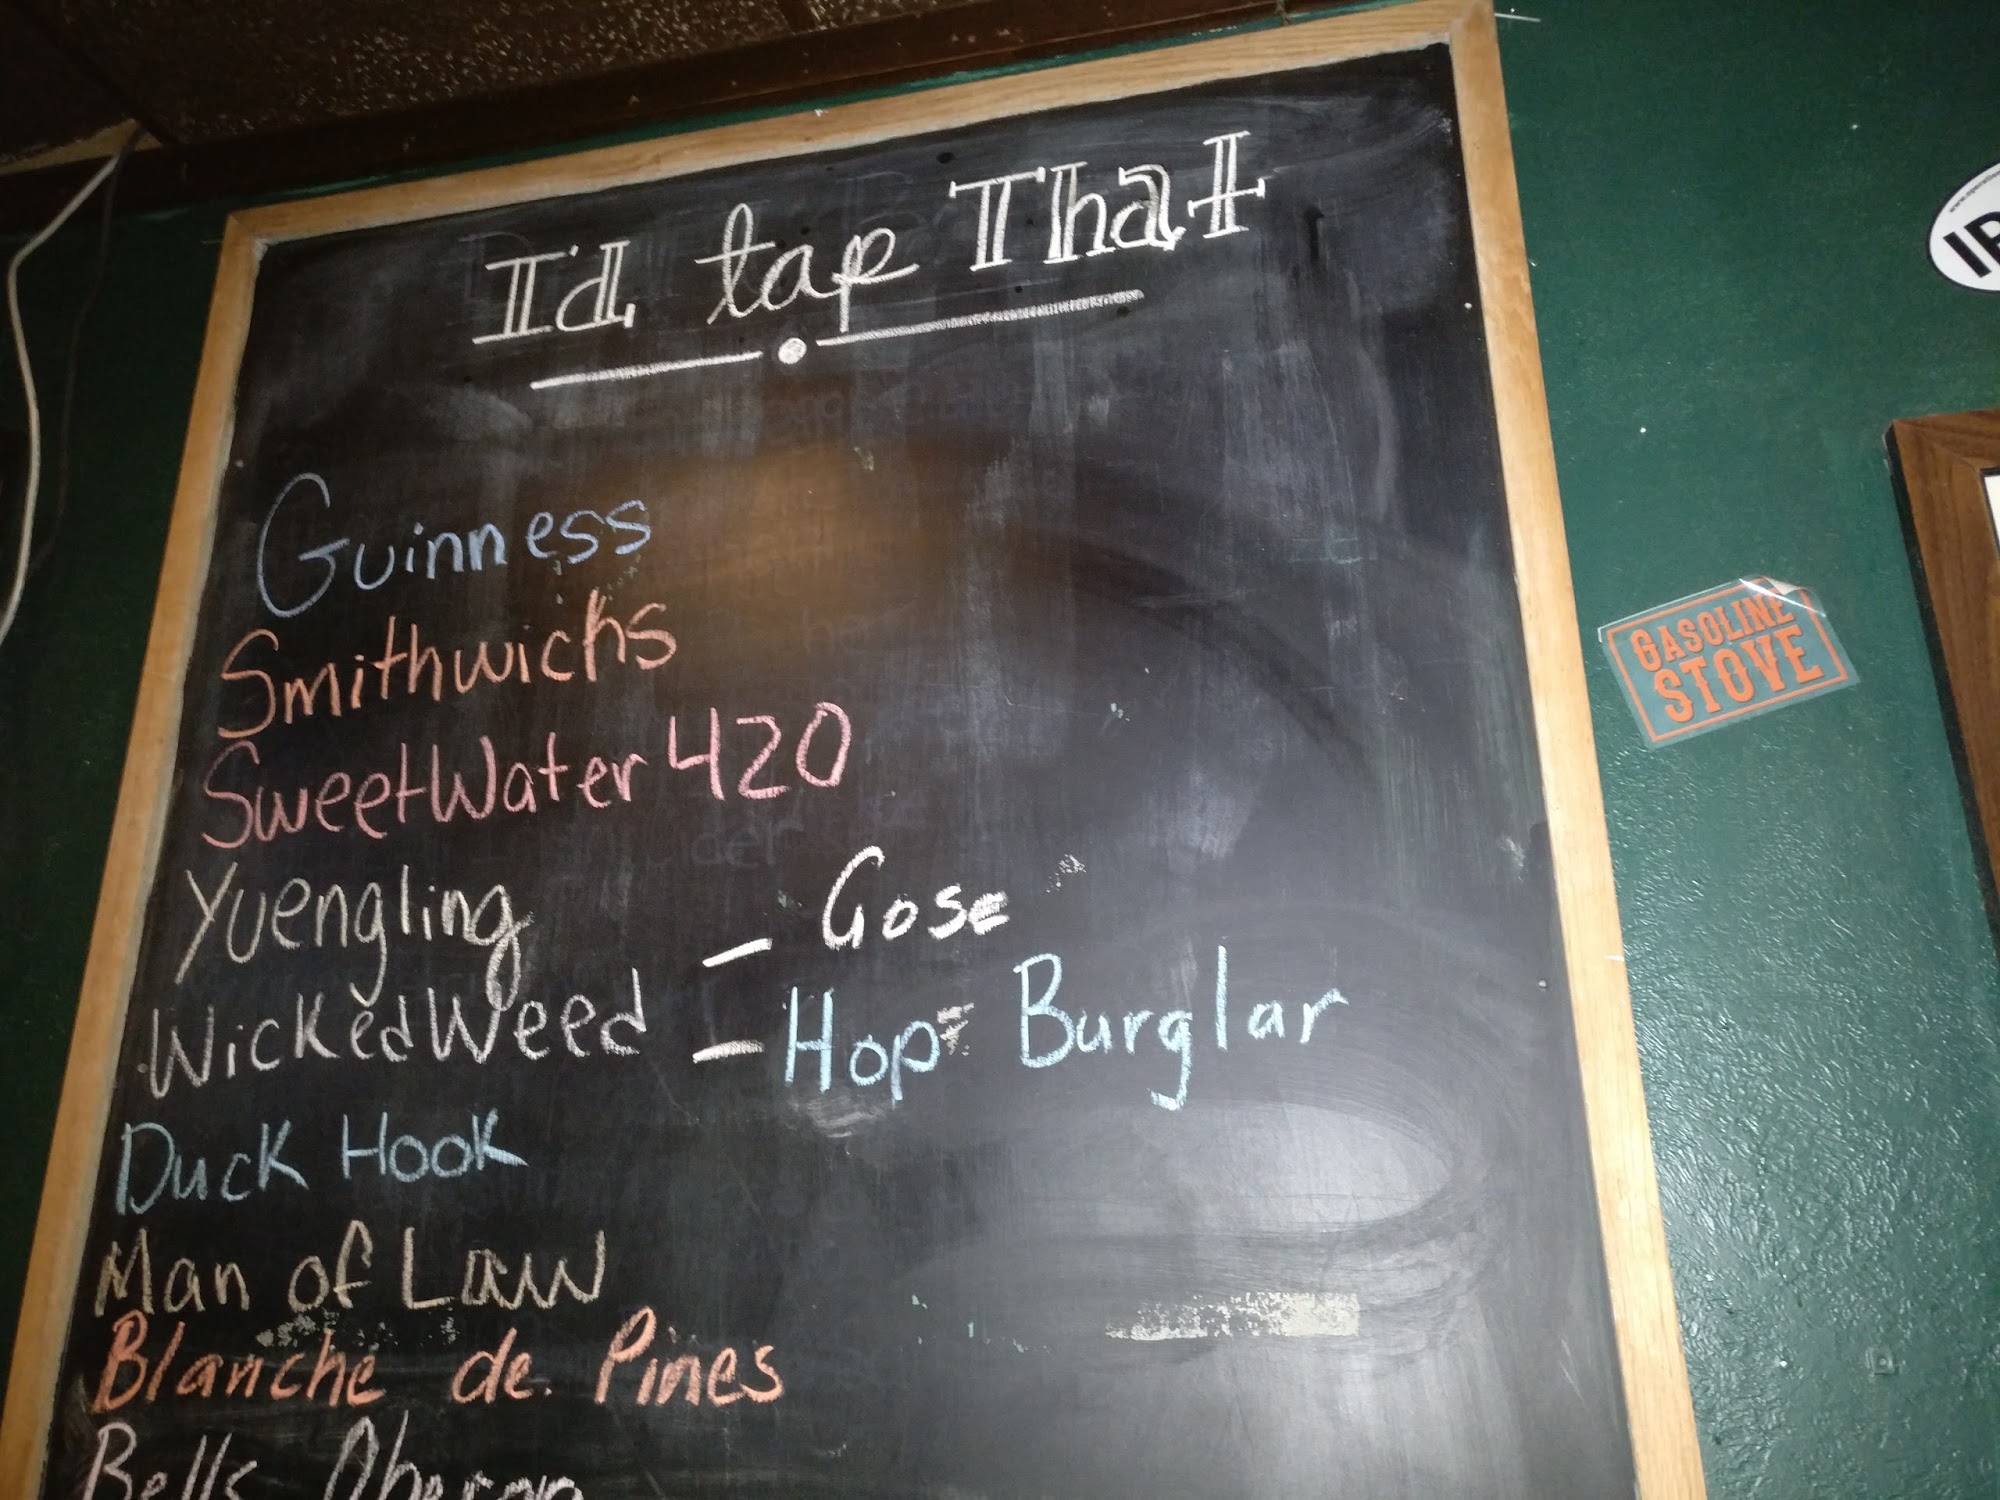 I'd tap That
Guinness
Smithwicks
SweetWater 420
Yuengling
- Gose
WickedWeed - Hop Burglar
Duck Hook
Man of Law
Blanche de. Pines
Bells Oberon
GASOLINE
STOVE